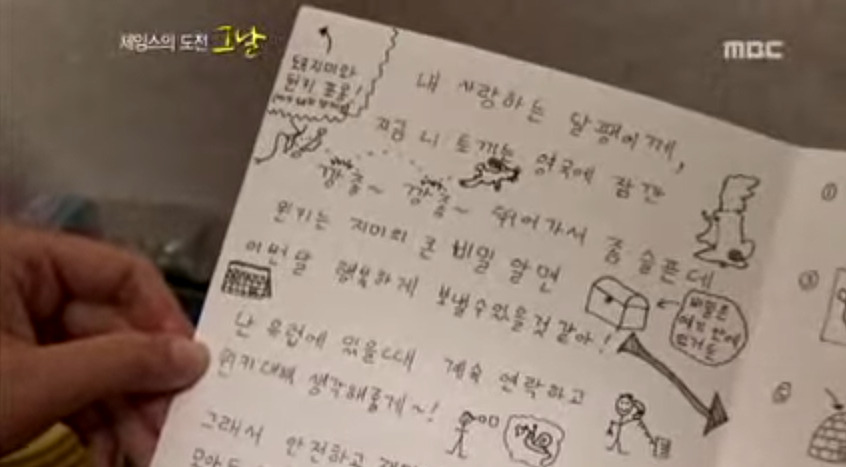 제임스의 도전 그날
MBC
돼지미와
윈키 포옹!
내 사랑하는 달팽이께,
지금 니 토끼는 영국에 잠깐
깡충~ 깡충~ 뛰어가서 좀 슬픈데
윈키는 지미의 큰 비밀 알면
이번달 행복하게 보낼수있을것 같아!
비밀은
여기 안에
난 유럽에 있을때 계속 연락하고
윈키대해 생각해줄게~!
그래서 안전하고
①
③